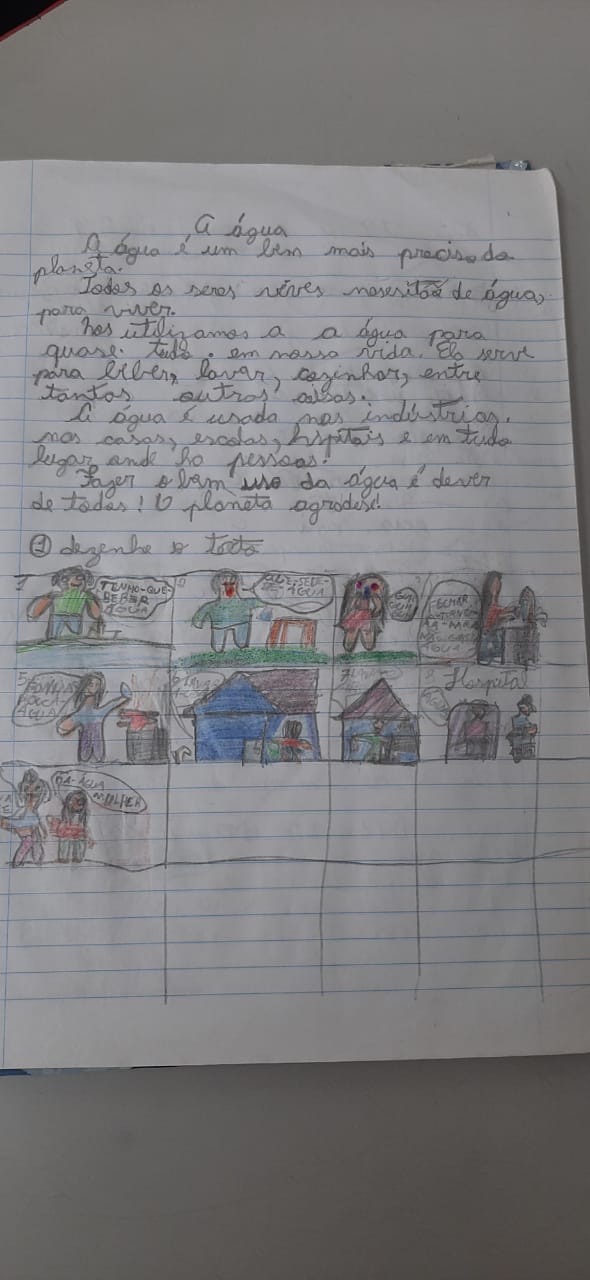 A água
A água é um bem mais preciso do
planeta.
Todos os seres vives nesesitão de água,
para viver.
Nos utilizamos a a água para
quase. tudo. em nossa vida. Ela serve
para biber, lavar, cozinhar, entre
tantos outros coisas.
A água é usada nas indústrias,
nas casas, escolas, hspitais e em tudo
lugar onde ha pessoas.
Fazer o bom uso da água é dever
de todos! O planeta agradese!
1 dezenhe o texto
TENHO-QUE-
BEBER
ÁGUA
QUE-SEDE-
DE-ÁGUA
FECHAR
A-TORNEI
RA-PARA
NÃO
ÁGUA
5
POUCA
ÁGUA
Hospital
DA-ÁGUA
MULHER